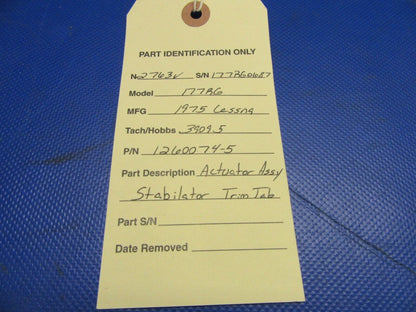 PART IDENTIFICATION ONLY
N 2763V S/N 177RG0687
Model 177RG
MFG 1975 Cessna
Tach/Hobbs 3909.5
P/N 1260074-5
Part Description Actuator Assy
Stabilator Trim Tab
Part S/N
Date Removed